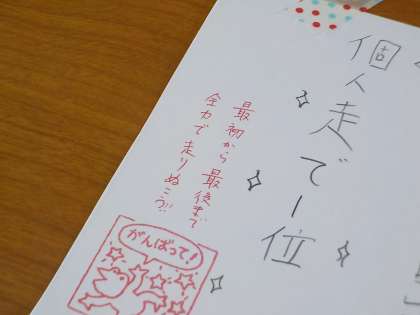 個人走で一位
最初から最後まで
全力で走りぬこう!!
がんばって!